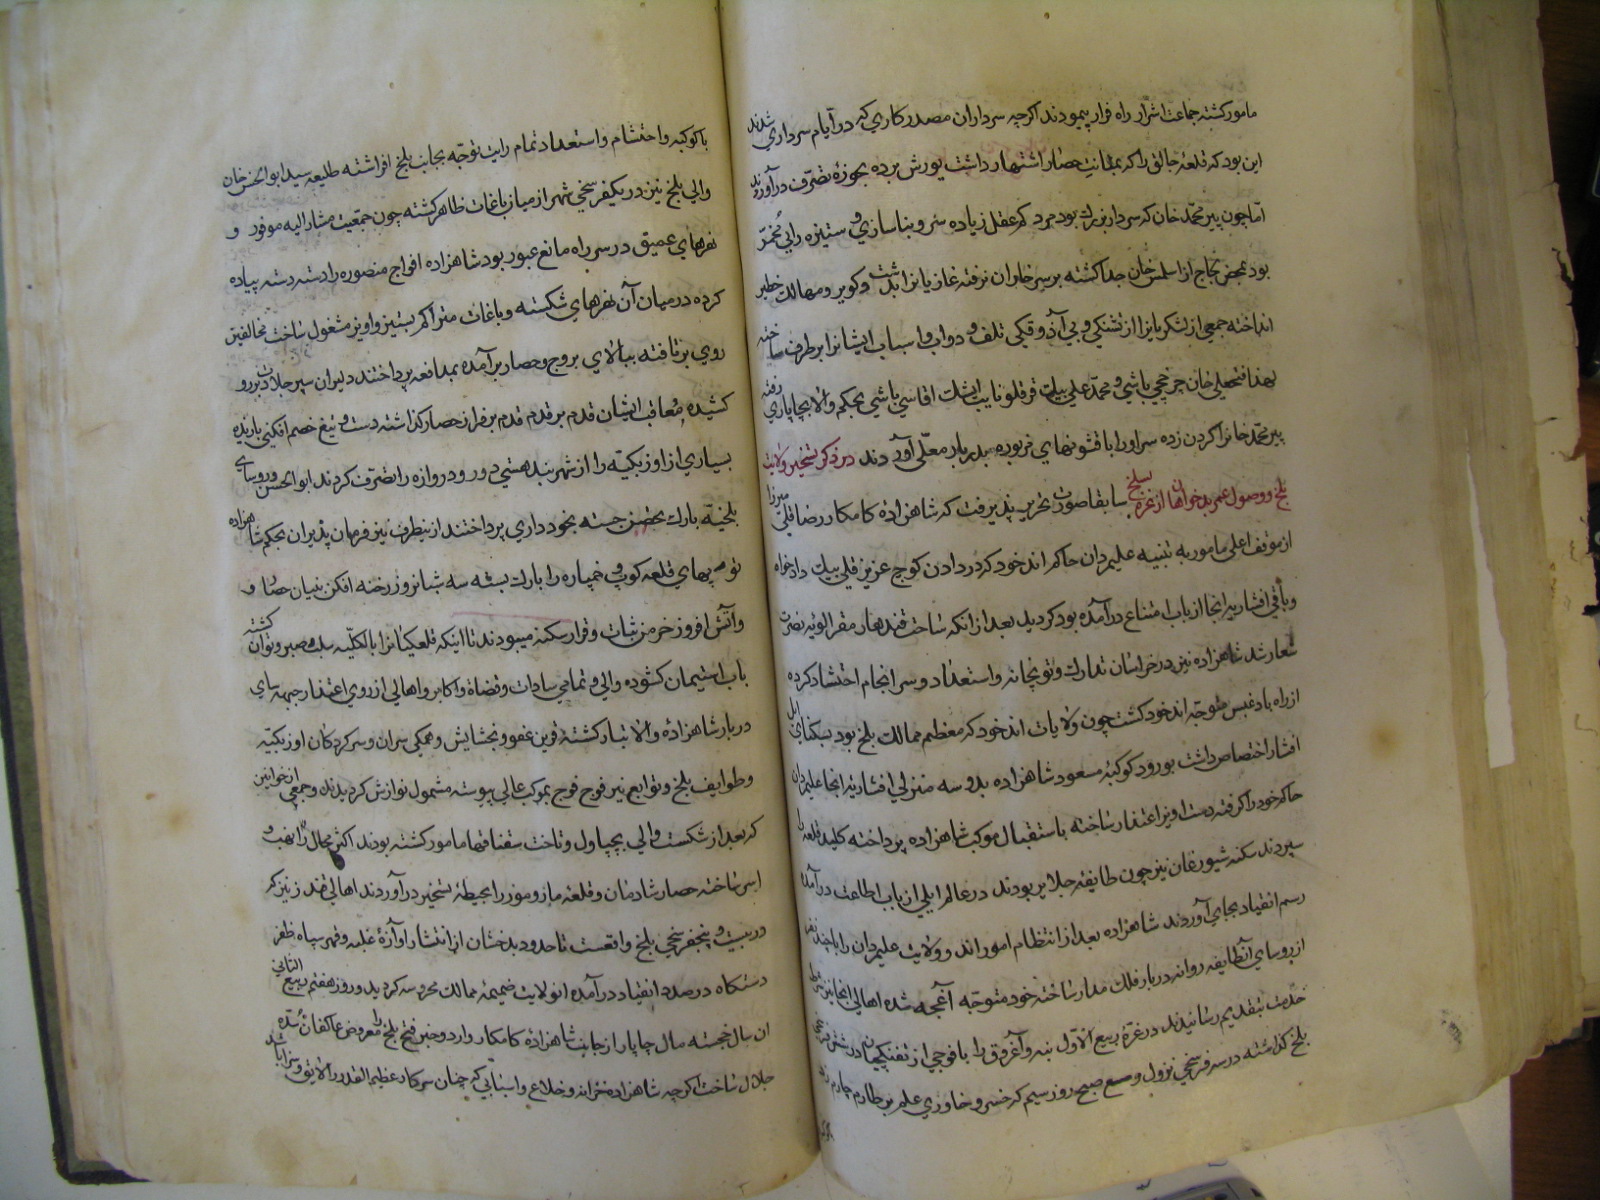 مامور کشته جماعت اشرار راه فرار پیمودند اکرچه سرداران مصدر کاری که در ایام سرداری شدند
این بود که قلعه جالق را که بمتانت حصار اشتهار داشت یورش برده بحوزهٔ تصرف درآوردند
اما چون پیر محمد خان که سردار بزرك بود بمرد کم عقل زیاده سر و بناسازی و ستیزه رایی مخمر
بود بمحض لجاج از اسلمس خان جدا کشته بر سر خاران نرفته غازیانرا بدشت و کویر و مهالك خطیر
انداخته جمعی از لشکریانرا از تشنکی و بی آذوقکی تلف و دواب و اسباب ایشانرا برطرف ساخته
لهذا فتحعلی خان چرخچی باشی و محمد علی بیك قرقلو نایب ایشك اقاسی باشی بحکم والا بچاپاری رفته
پیر محمد خانرا کردن زده سر او را با قشونهای مزبوره بدربار معلی آوردند در ذکر تسخیر ولایت
بلخ و وصول عمر بدخواهان از غره بسلخ سابقا صورت تحریر پذیرفت که شاهزاده کامکار رضا قلی میرزا
از موقف اعلی مامور به تنبیه علیمردان حاکم اندخود که در دادن کوچ عزیز قلی بیك دادخواه
و باقی افشاریه انجا از باب امتناع درآمده بود کردید بعد از انکه ساحت قندهار مقر الویه نصرت
شعار شد شاهزاده نیز در خراسان تدارك و توپخانه و استعداد و سرانجام احتشاد کرده
از راه بادغیس متوجه اندخود کشت چون ولایات اندخود که معظم ممالك بلخ بود بسکنای ایل
افشار اختصاص داشت بورود کوکبهٔ مسعود شاهزاده بدو سه منزلی افشاریه انجا علیمردان
حاکم خود را کرفته دست اویز اعتذار ساخته باستقبال موکب شاهزاده پرداخته کلید قلعه را
سپردند سکنه شبورغان نیز چون طایفهٔ جلایر بودند در عالم ایلی از باب اطاعت درآمده
رسم انقیاد بجای آوردند شاهزاده بعد از انتظام امور اندخود و ولایت علیمردان را با چند نفر
از روسای آنطایفه روانه دربار فلك مدار ساخته خود متوجه آقچه شده اهالی انجا نیز
خدمت بتقدیم رسانیدند در غرهٔ ربیع الاول بنه و آغروق را با فوجی از تفنکچیان در شش فرسخی
بلخ کذاشته در سه فرسخی نزول و صبح روز سیم که خسرو خاوری علم بر طارم چارم زد
با کوکبه
با کوکبه و احتشام و استعداد تمام رایت توجه بجانب بلخ افراشته طلیعه سید ابوالحسن خان
والی بلخ نیز در یکفرسخی شهر از میان باغات ظاهر کشته چون جمعیت مشار الیه موفور و
نهرهای عمیق در سر راه مانع عبور بود شاهزاده افواج منصوره را دسته دسته پیاده
کرده در میان آن نهرهای شکسته و باغات متراکم بستیز و اویز مشغول ساخت مخالفین
روی برتافته ببالای بروج و حصار برآمده بمدافعه پرداختند دلیران سپر جلادت بررو
کشیده معاقب ایشان قدم بر قدم قدم بر فراز حصار کذاشته دست و تیغ خصم افکنی یازیده
بسیاری از اوزبکیه را از شهربند هستی دور و دروازه را تصرف کردند ابوالحسن و روسای
بلخیه بارك تحصن جسته بخودداری پرداختند از ینطرف نیز فرمان پذیران بحکم شاهزاده
توپهای قلعه کوب و خمپاره را بارك بسته سه شبانروز رخنه افکن بنیان حصار و
و آتش افروز خرمن ثبات و قرار سکنه میبودند تا اینکه قلعکیانرا بالکلیه سلب صبر و توان کشته
باب استیمان کشوده والی و تمامی سادات و قضاة و اکابر و اهالی از روی اعتذار جبهه سای
دربار شاهزاده والا تبار کشته قرین عفو و بخشایش و همکی سران و سرکردکان اوزبکیه
و طوایف بلخ و توابع نیز فوج فوج بموکب عالی پیوسته مشمول نوازش کردیدند و جمعی از خوانین
که بعد از شکست والی بچپاول و تاخت سقناقها مامور کشته بودند اکثر محال را نهب و
اسر ساخته حصار شادمان و قلعه را بحیطهٔ تسخیر درآوردند اهالی قندزنیز که
در بیست و پنجفرسخی بلخ واقعست تا حدود بدخشان از انتشار اوآزهٔ غلبه و قهر سپاه ظفر
دستکاه در صدد انقیاد درآمده انولایت ضمیمهٔ ممالك محروسه کردید و روز هفتم ربیع الثانی
ان سال خجسته مال چاپار از جانب شاهزاده کامکار وارد و خبر فتح بلخ را معروض عاکفان سده
جلال ساخت اکرچه شاهزاده خزانه و خلاع و اسبابی که چنان سرکار عظیم القدر را لایق و سزا باشد